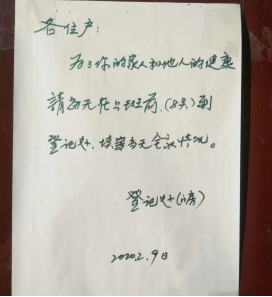 各住户:
为了你的家人和他人的健康
請每天在上班前,(8点)到
登记处,填写当天全家情况。
登记处(门房)
2020.2.9日